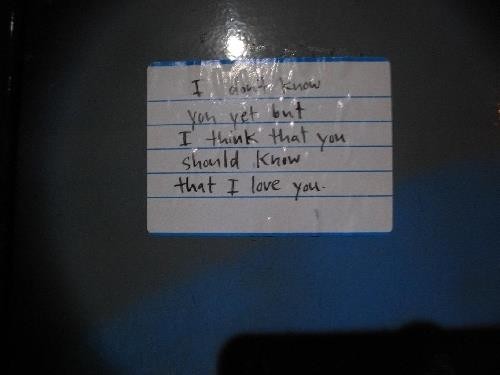 I don't know
you yet but
I think that you
should know
that I love you.